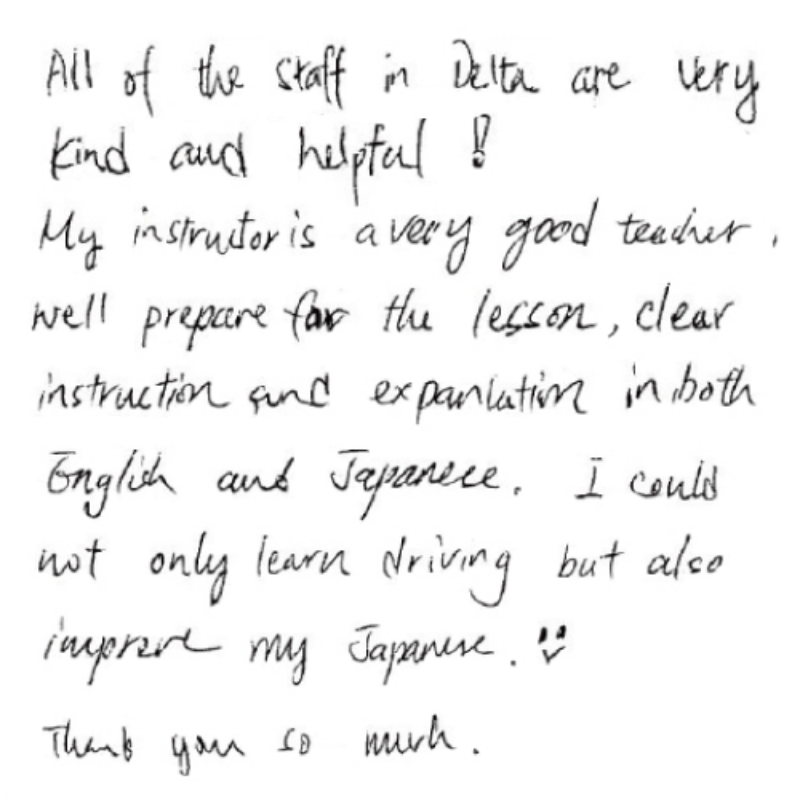 All of the staff in Delta are very
kind and helpful !
My instructor is a very good teacher,
well prepare for the lesson, clear
instruction and expanlation in both
English and Japanese. I could
not only learn driving but also
improve my Japanese. ツ
Thank you so much.